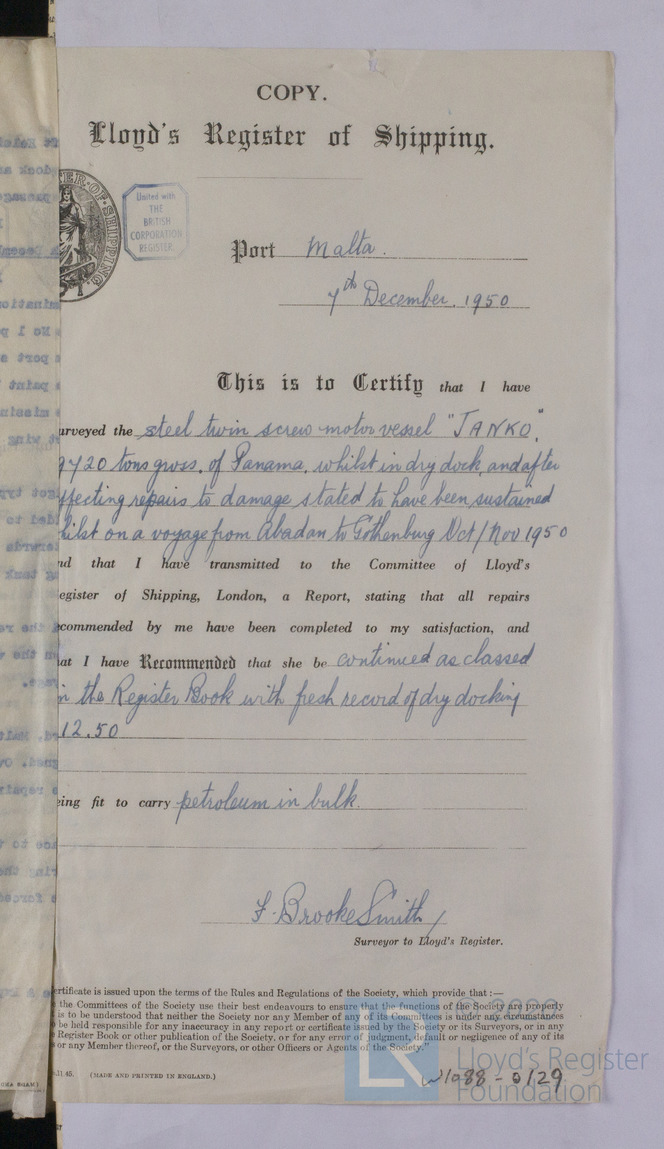 COPY.
Lloyd's Register of Shipping.
TER·OF·SHIPPING.
United with
THE
BRITISH
CORPORATION
REGISTER.
Port Malta.
7th December. 1950
This is to Certify that I have
urveyed the steel twin screw motor vessel "JANKO",
9720 tons gross, of Panama, whilst in dry dock, and after
ffecting repairs to damage stated to have been sustained
hilst on a voyage from Abadan to Gothenburg Oct/Nov 1950
nd that I have transmitted to the Committee of Lloyd's
egister of Shipping, London, a Report, stating that all repairs
ecommended by me have been completed to my satisfaction, and
at I have Recommended that she be continued as classed
in the Register Book with fresh record of dry docking
12.50
eing fit to carry petroleum in bulk.
F. Brooke Smith
Surveyor to Lloyd's Register.
ertificate is issued upon the terms of the Rules and Regulations of the Society, which provide that :—
the Committees of the Society use their best endeavours to ensure that the functions of the Society are properly
is to be understood that neither the Society nor any Member of any of its Committees is under any circumstances
be held responsible for any inaccuracy in any report or certificate issued by the Society or its Surveyors, or in any
Register Book or other publication of the Society, or for any error of judgment, default or negligence of any of its
or any Member thereof, or the Surveyors, or other Officers or Agents of the Society."
(MADE AND PRINTED IN ENGLAND.)
W1088-0129
LR
© 2020
Lloyd's Register
Foundation